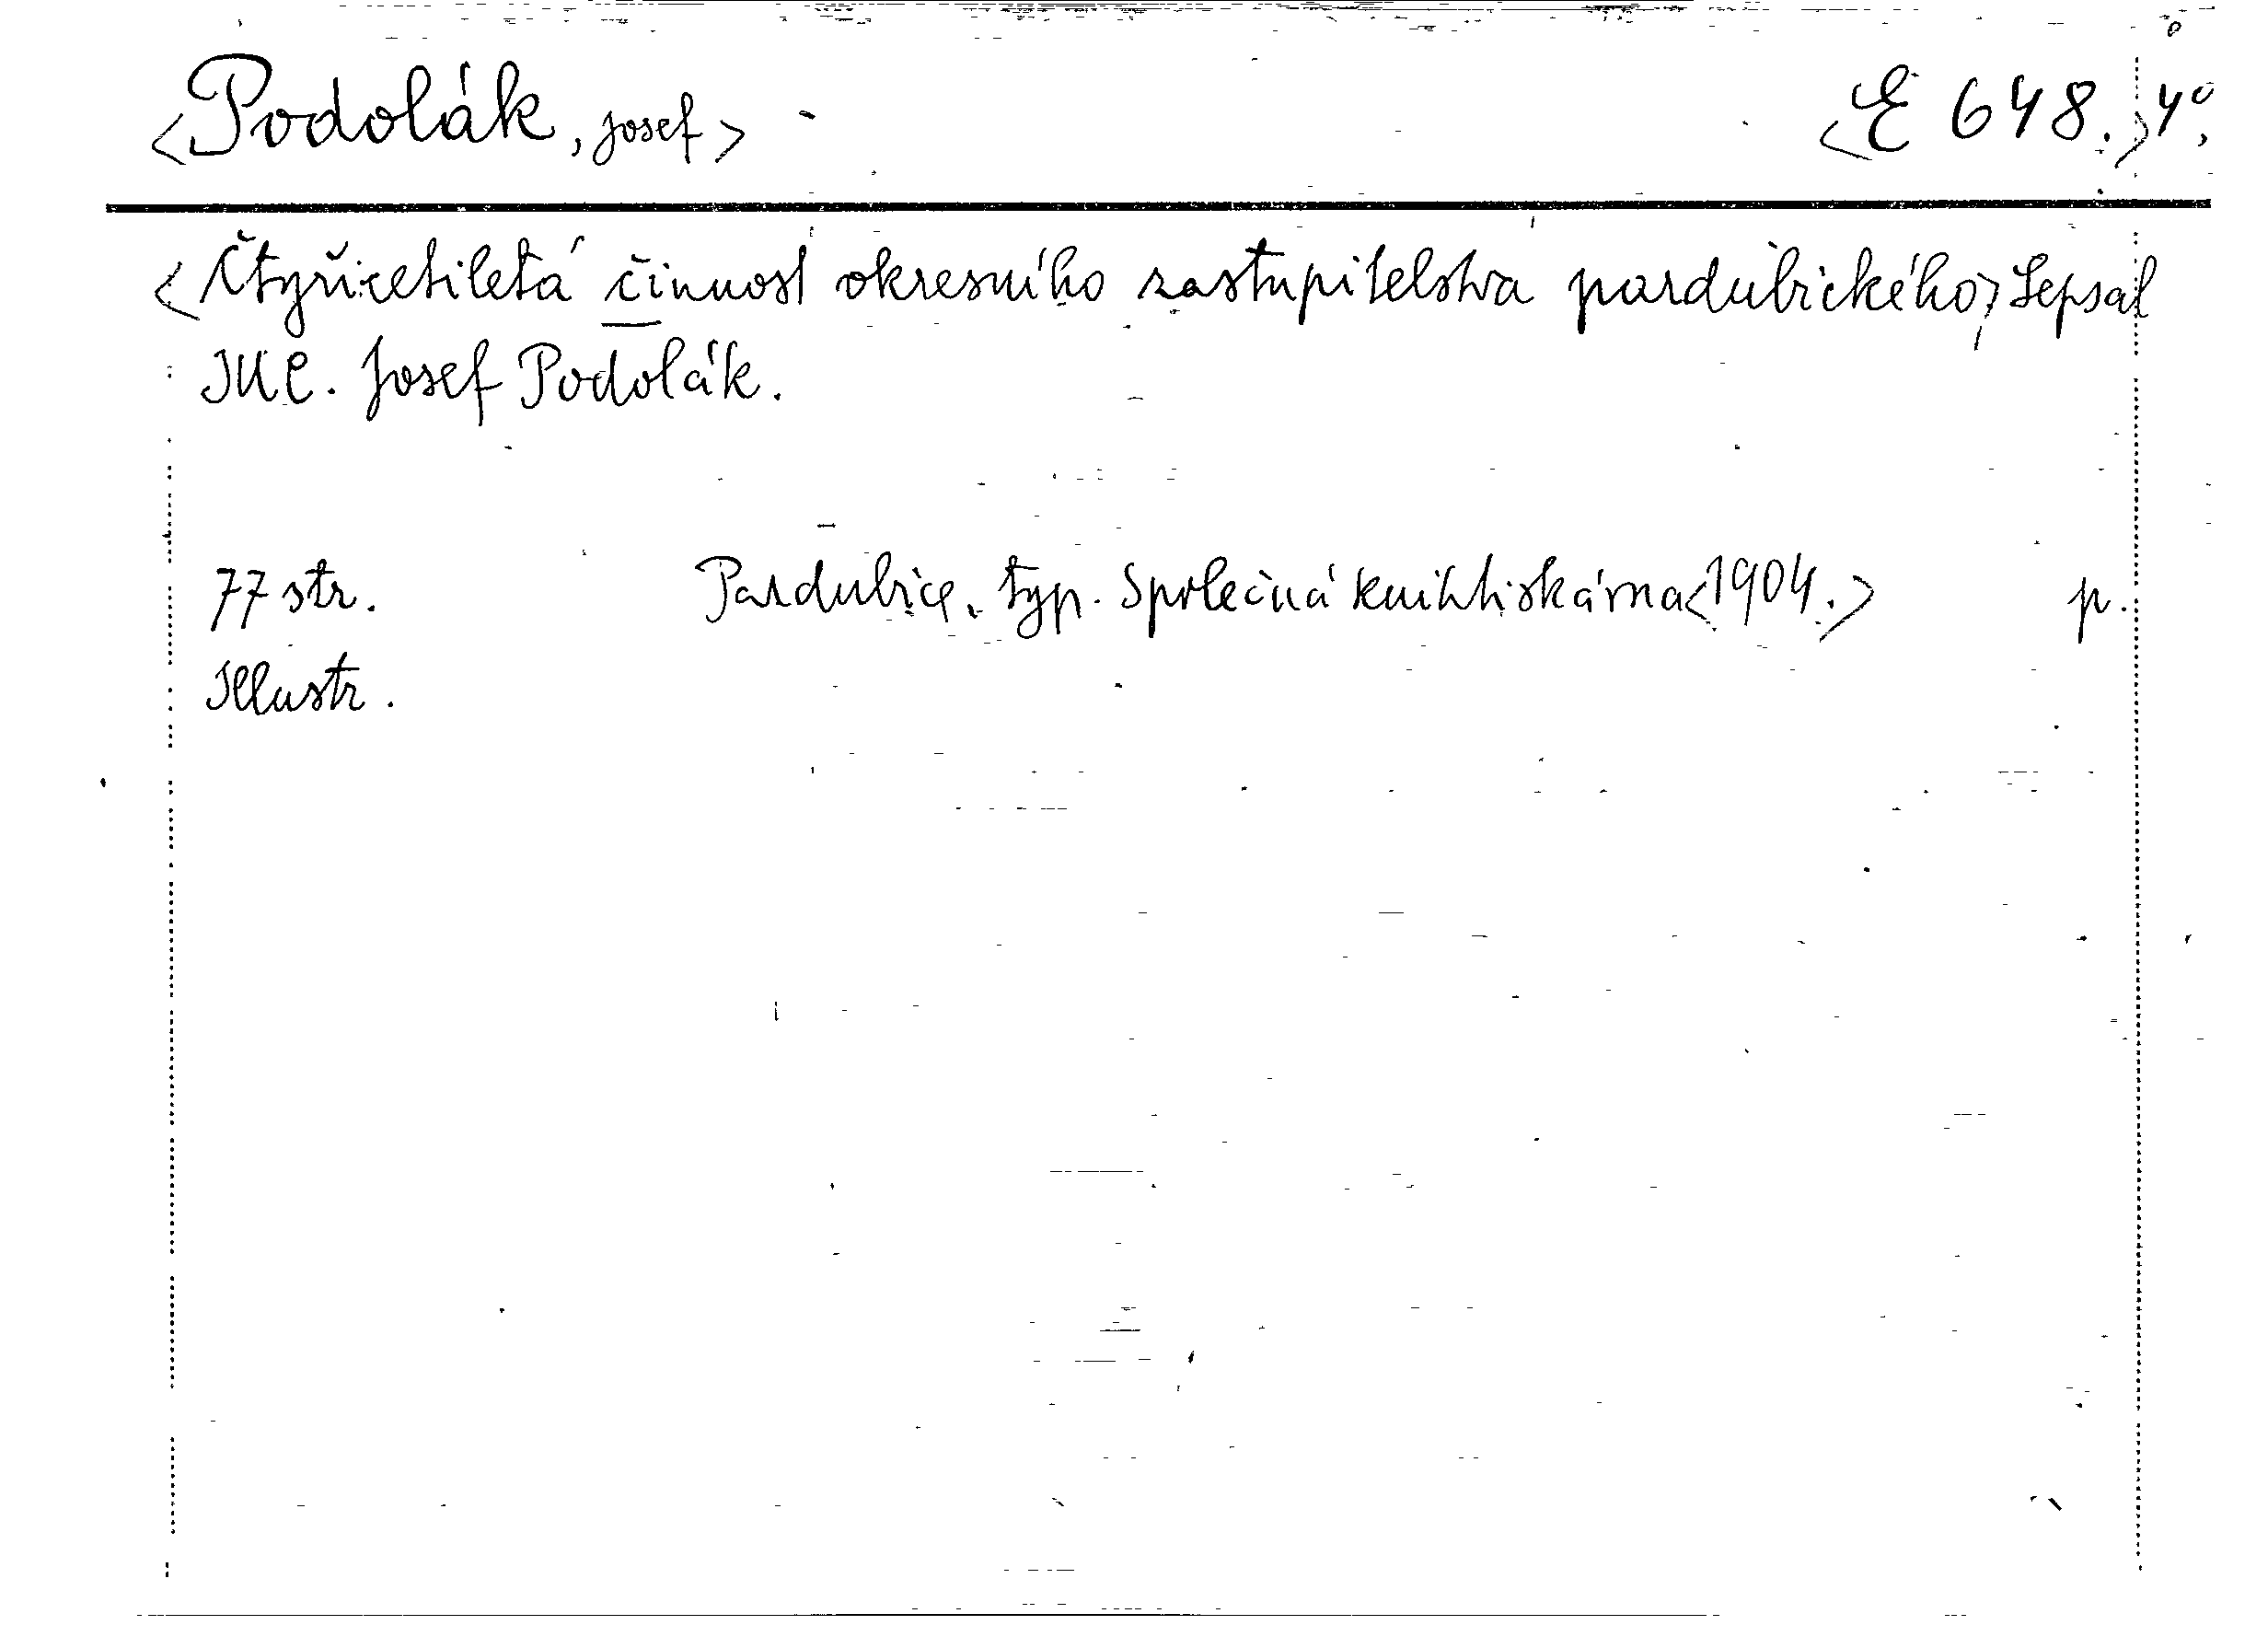 <Podolák, Josef>
<E 648.> 4°,
<Čtyřicetiletá činnost okresního zastupitelstva pardubického> Sepsal
JUC. Josef Podolák.
77 str. Pardubice, typ. Společná knihtiskárna <1904.> p.
Illustr.